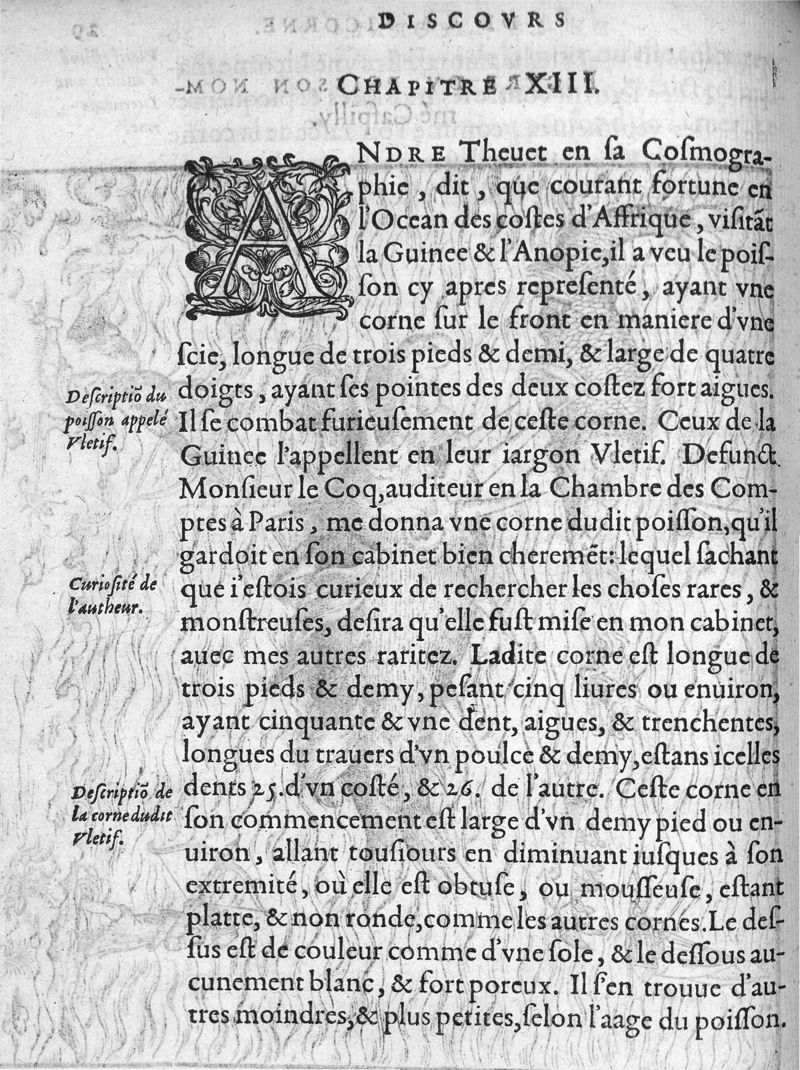 DISCOVRS
CHAPITRE XIII.
ANDRE Theuet en sa Cosmogra-
phie, dit, que courant fortune en
l'Ocean des costes d'Affrique, visitãt
la Guinee & l'Anopie, il a veu le pois-
son cy apres representé, ayant vne
corne sur le front en maniere d'vne
scie, longue de trois pieds & demi, & large de quatre
doigts, ayant ses pointes des deux costez fort aigues.
Il se combat furieusement de ceste corne. Ceux de la
Guinee l'appellent en leur iargon Vletif. Defunct
Monsieur le Coq, auditeur en la Chambre des Com-
ptes à Paris, me donna vne corne dudit poisson, qu'il
gardoit en son cabinet bien cheremẽt: lequel sachant
que i'estois curieux de rechercher les choses rares, &
monstreuses, desira qu'elle fust mise en mon cabinet,
auec mes autres raritez. Ladite corne est longue de
trois pieds & demy, pesant cinq liures ou enuiron,
ayant cinquante & vne dent, aigues, & trenchentes,
longues du trauers d'vn poulce & demy, estans icelles
dents 25. d'vn costé, & 26. de l'autre. Ceste corne en
son commencement est large d'vn demy pied ou en-
uiron, allant tousiours en diminuant iusques à son
extremité, où elle est obtuse, ou mousseuse, estant
platte, & non ronde, comme les autres cornes. Le des-
sus est de couleur comme d'vne sole, & le dessous au-
cunement blanc, & fort poreux. Il s'en trouue d'au-
tres moindres, & plus petites, selon l'aage du poisson.
Descriptiõ du
poisson appelé
Vletif.
Curiosité de
l'autheur.
Descriptiõ de
la corne dudit
Vletif.